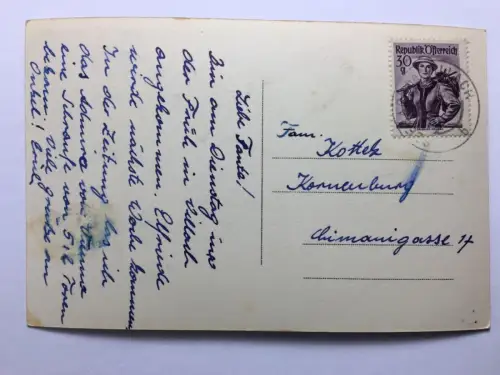 Liebe Tante!
Bin am Dienstag in
der Früh in Villach
angekommen. Elfriede
werde nächste Woche kommen
In der Zeitung las ich
das Schwarze von
eine Schraufe von 5 1/2 Tonen
bekam. Viele Grüße an
Onkel! Emil
Republik Österreich
30
g
Fam:
Kotlek
Korneuburg
Bimanigasse 14